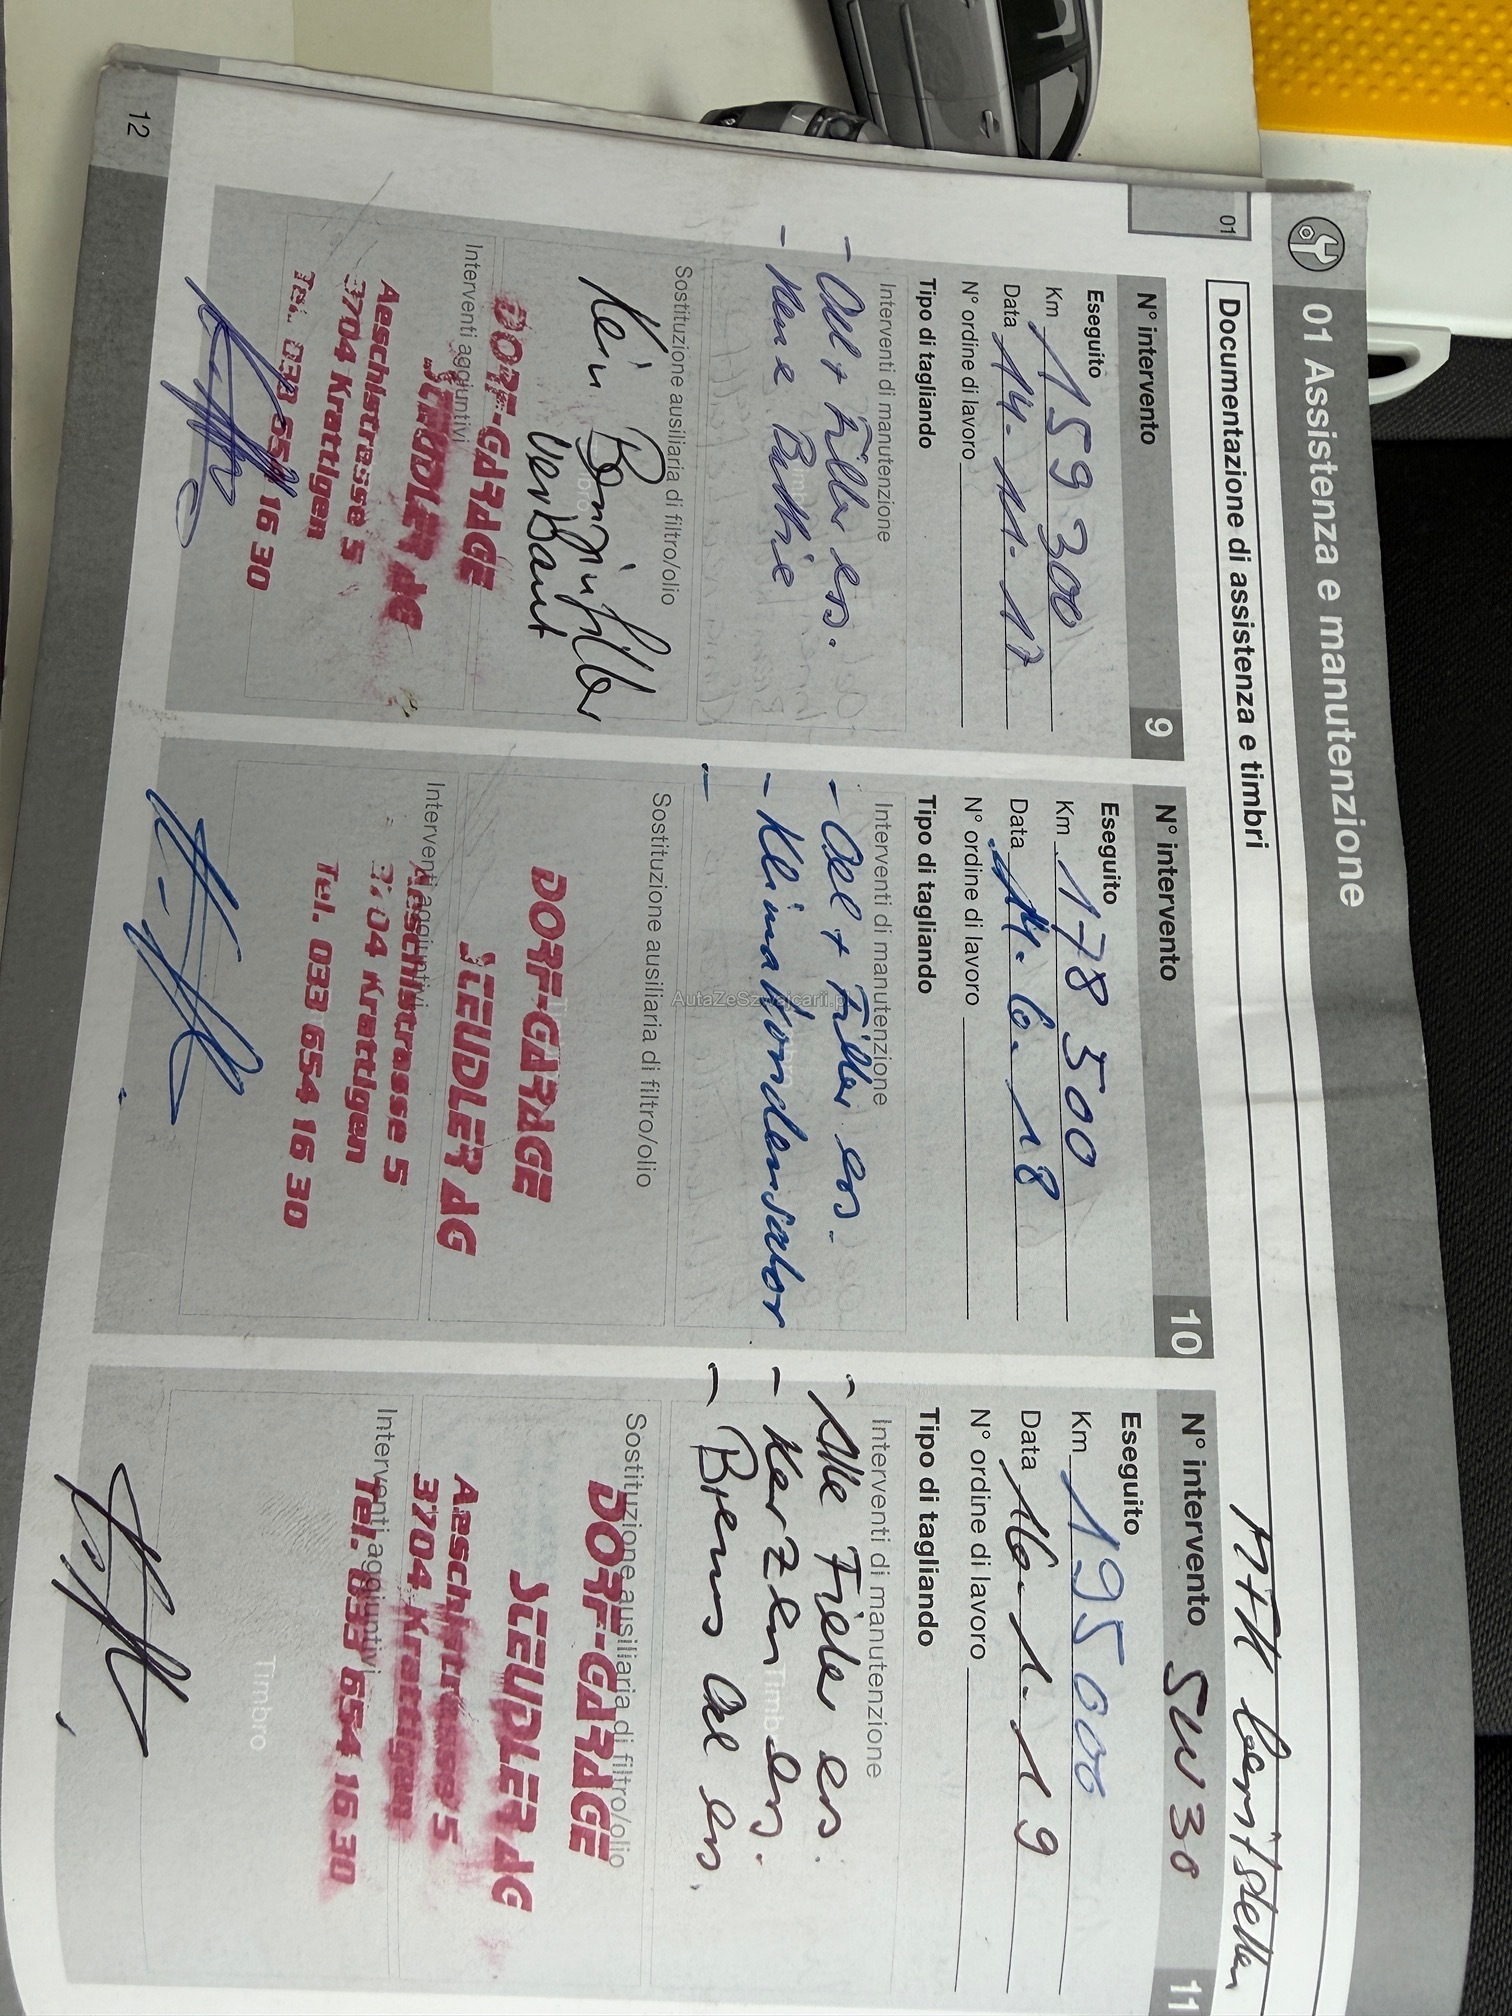 01 Assistenza e manutenzione
01
Documentazione di assistenza e timbri
N° intervento 9
Eseguito
Km 159300
Data 14.11.17
N° ordine di lavoro
Tipo di tagliando
Interventi di manutenzione
- Oel + Filter ers.
- Neue Battrie
Sostituzione ausiliaria di filtro/olio
Kein Benzinfilter
Verbaut
DORF-GARAGE
Interventi aggiuntivi
SEUDLER AG
Aeschistrasse 5
3704 Krattigen
Tel. 033 654 16 30
N° intervento 10
Eseguito
Km 178500
Data 14.6.18
N° ordine di lavoro
Tipo di tagliando
Interventi di manutenzione
- Oel + Filter ers.
- Klimakondensator
-
Sostituzione ausiliaria di filtro/olio
DORF-GARAGE
SEUDLER AG
Interventi aggiuntivi
Aeschistrasse 5
3704 Krattigen
Tel. 033 654 16 30
MFK bereitstellen
N° intervento SW 30 11
Eseguito
Km 195000
Data 16.1.19
N° ordine di lavoro
Tipo di tagliando
Interventi di manutenzione
- Alle Filter ers.
- Kerzen ers.
Timbro
- Brems Oel ers.
Sostituzione ausiliaria di filtro/olio
DORF-GARAGE
SEUDLER AG
Aeschistrasse 5
3704 Krattigen
Interventi aggiuntivi
Tel. 033 654 16 30
Timbro
12
AutaZeSzwajcarii.pl